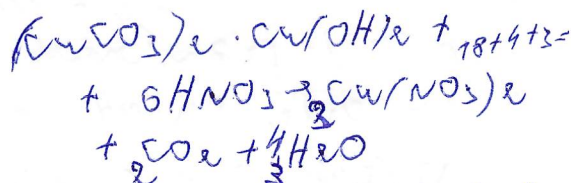 (CuCO3)2 · Cu(OH)2 + 18+4+3=
+ 6HNO3 → 3Cu(NO3)2
+ 2CO2 + 4H2O
3